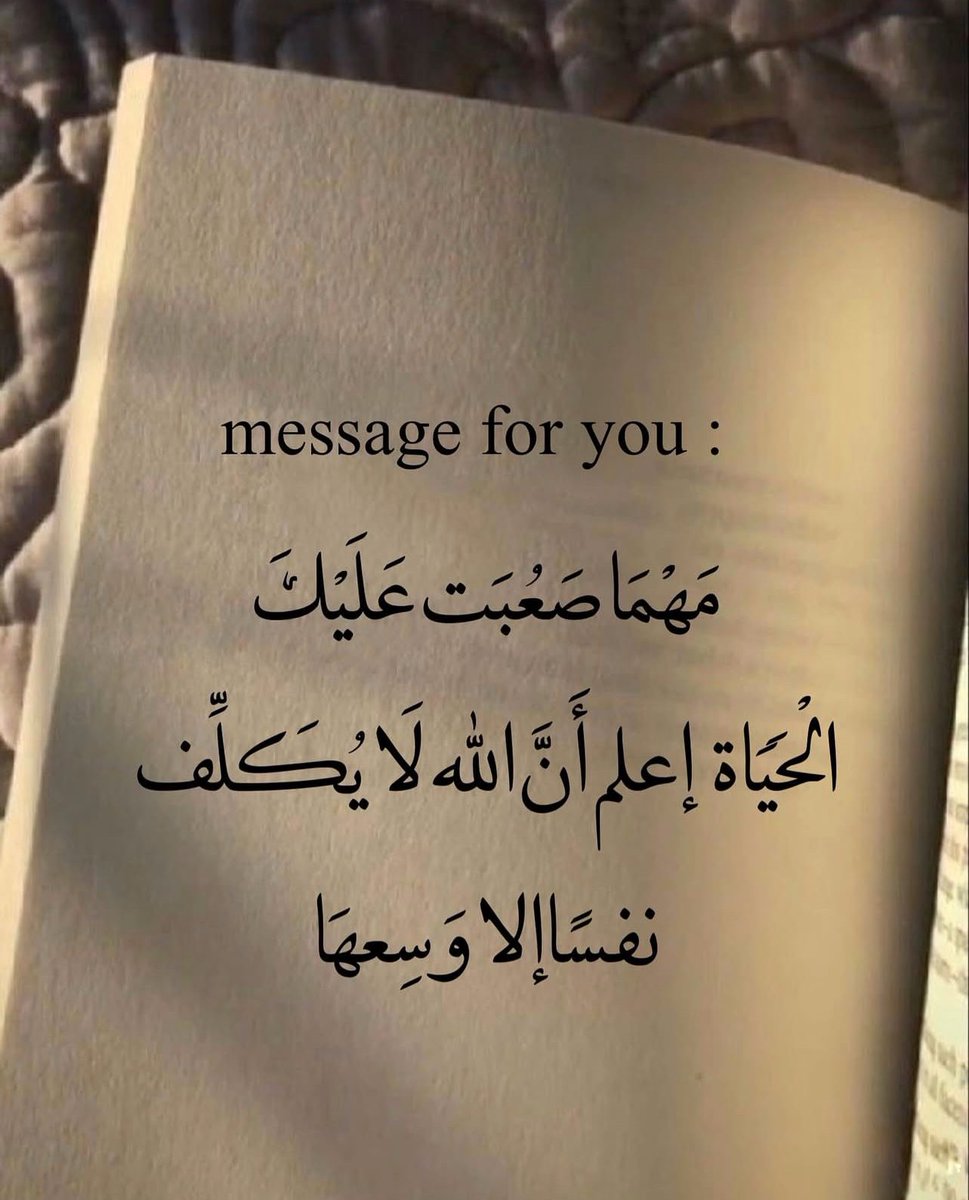 message for you :
مَهْمَا صَعُبَت عَلَيْكَ
الْحَيَاة إعلم أَنَّ الله لَا يُكَلِّف
نفسًا إلا وَسِعهَا